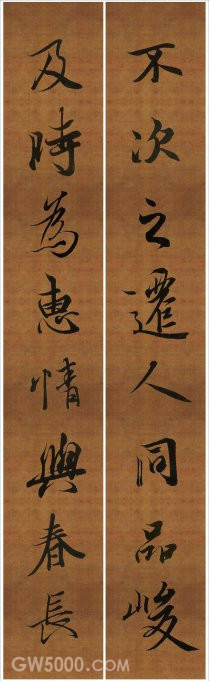 不次之遷人同品峻
及時為惠情與春長
GW5000.com